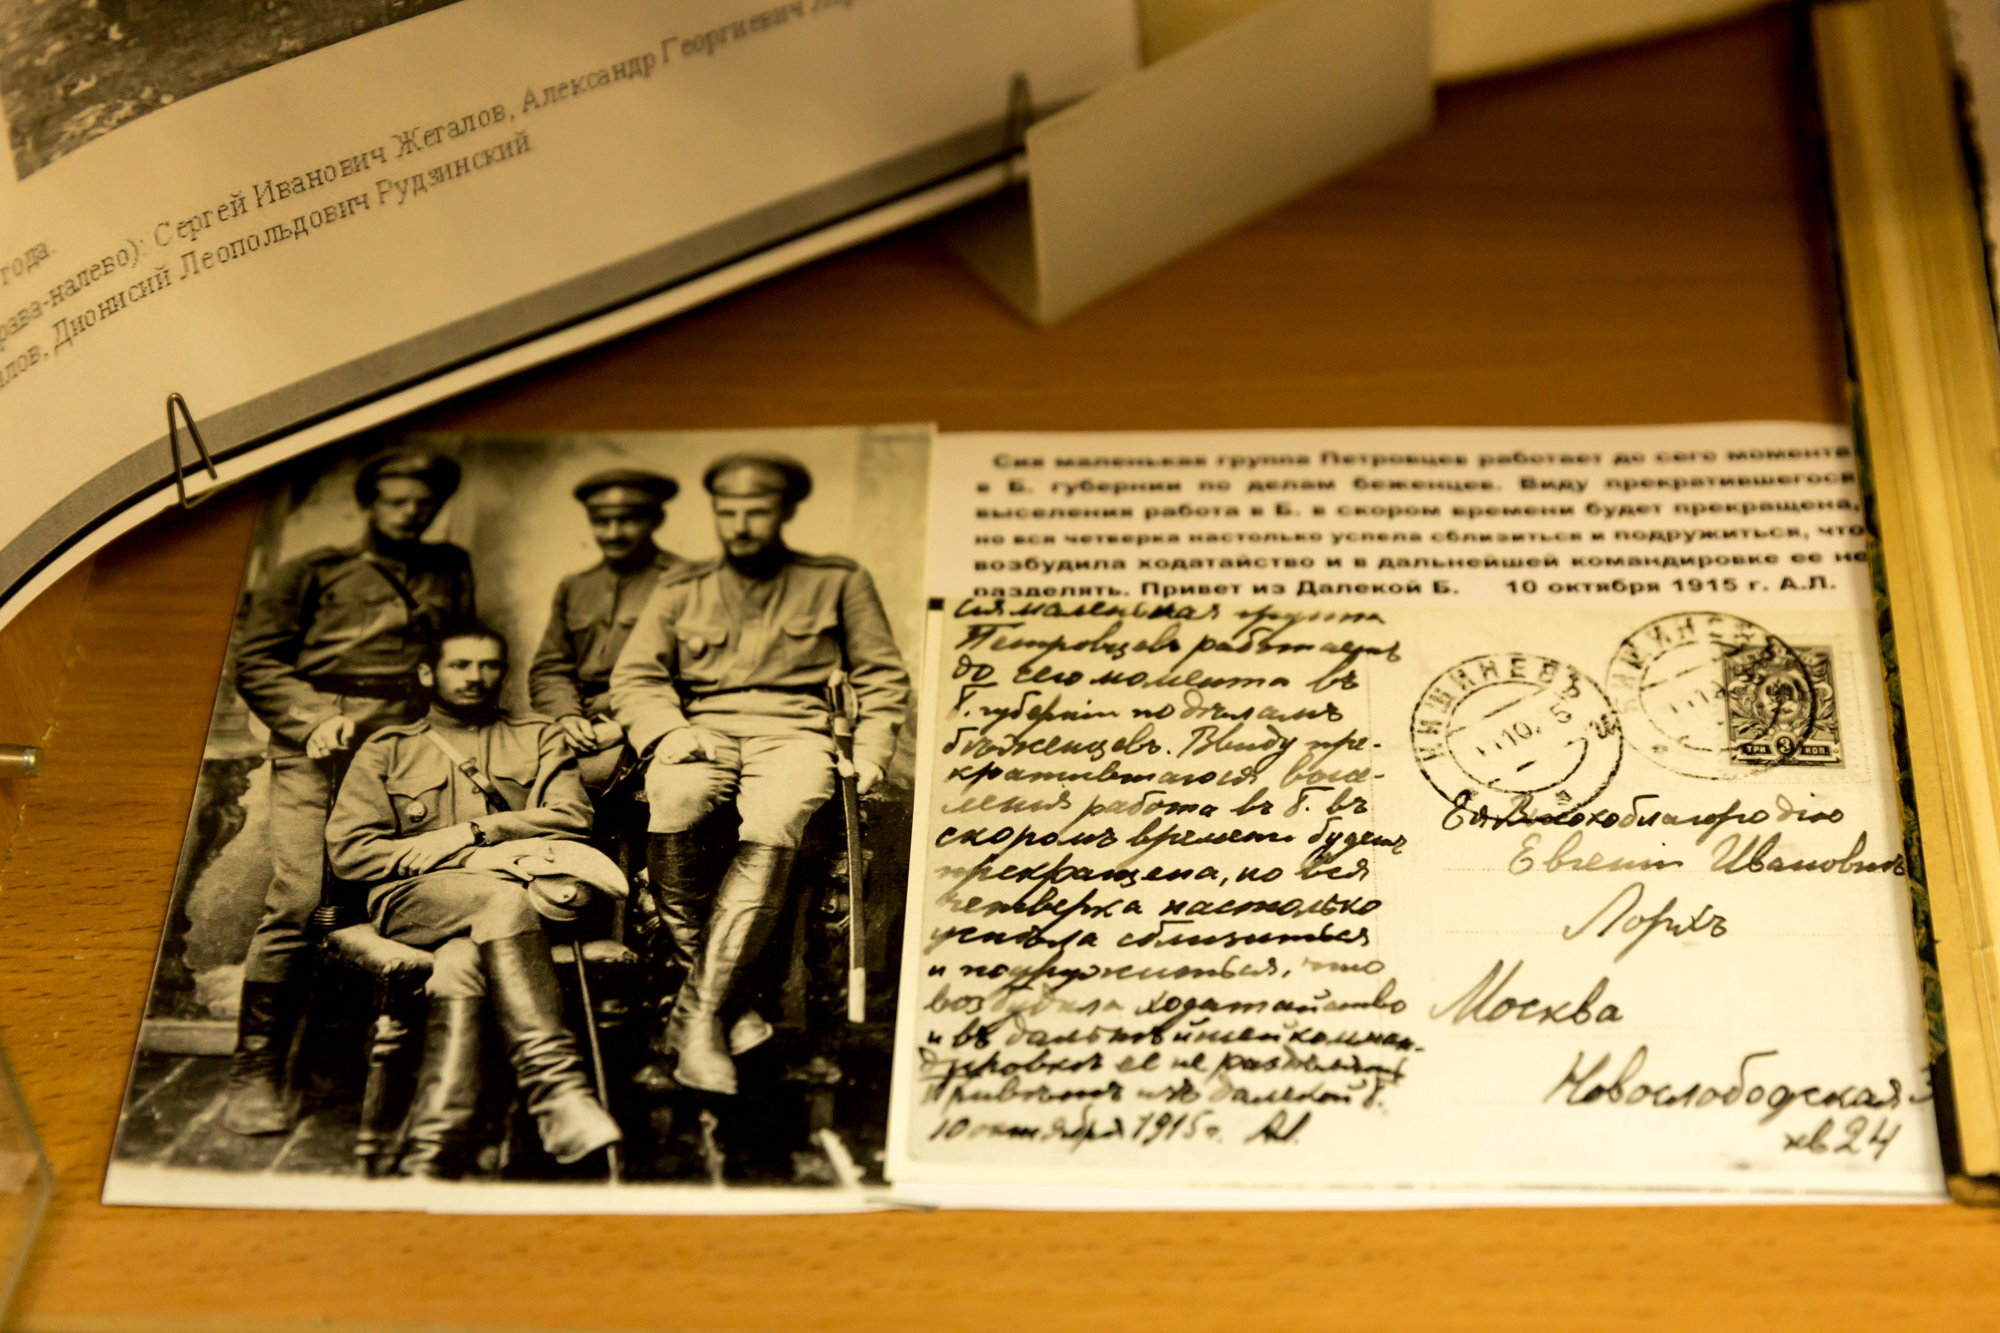 года.
рава-налево): Сергей Иванович Жегалов, Александр Георгиевич
алов, Дионисий Леопольдович Рудзинский
Сия маленькая группа Петровцев работает до сего момента
в Б. губернии по делам беженцев. Виду прекратившегося
выселения работа в Б. в скором времени будет прекращена,
но вся четверка настолько успела сблизиться и подружиться, что
возбудила ходатайство и в дальнейшей командировке ее не
разделять. Привет из Далекой Б. 10 октября 1915 г. А.Л.
Сия маленькая группа
Петровцевъ работаетъ
до сего момента въ
Б. губернiи по дѣламъ
бѣженцевъ. Ввиду пре-
кратившагося высе-
ленiя работа въ Б. въ
скоромъ времени будетъ
прекращена, но вся
четверка настолько
успѣла сблизиться
и подружиться, что
возбудила ходатайство
и въ дальнѣйшей коман-
дировкѣ ее не раздѣлять
Привѣтъ изъ далекой Б.
10 октября 1915 г. АЛ.
КИШИНЕВЪ
11 10 5
КИШИНЕВ
ТРИ 3 КОП.
Ея Высокоблагородiю
Евгенiи Ивановнѣ
Лорхъ
Москва
Новослободская
кв 24